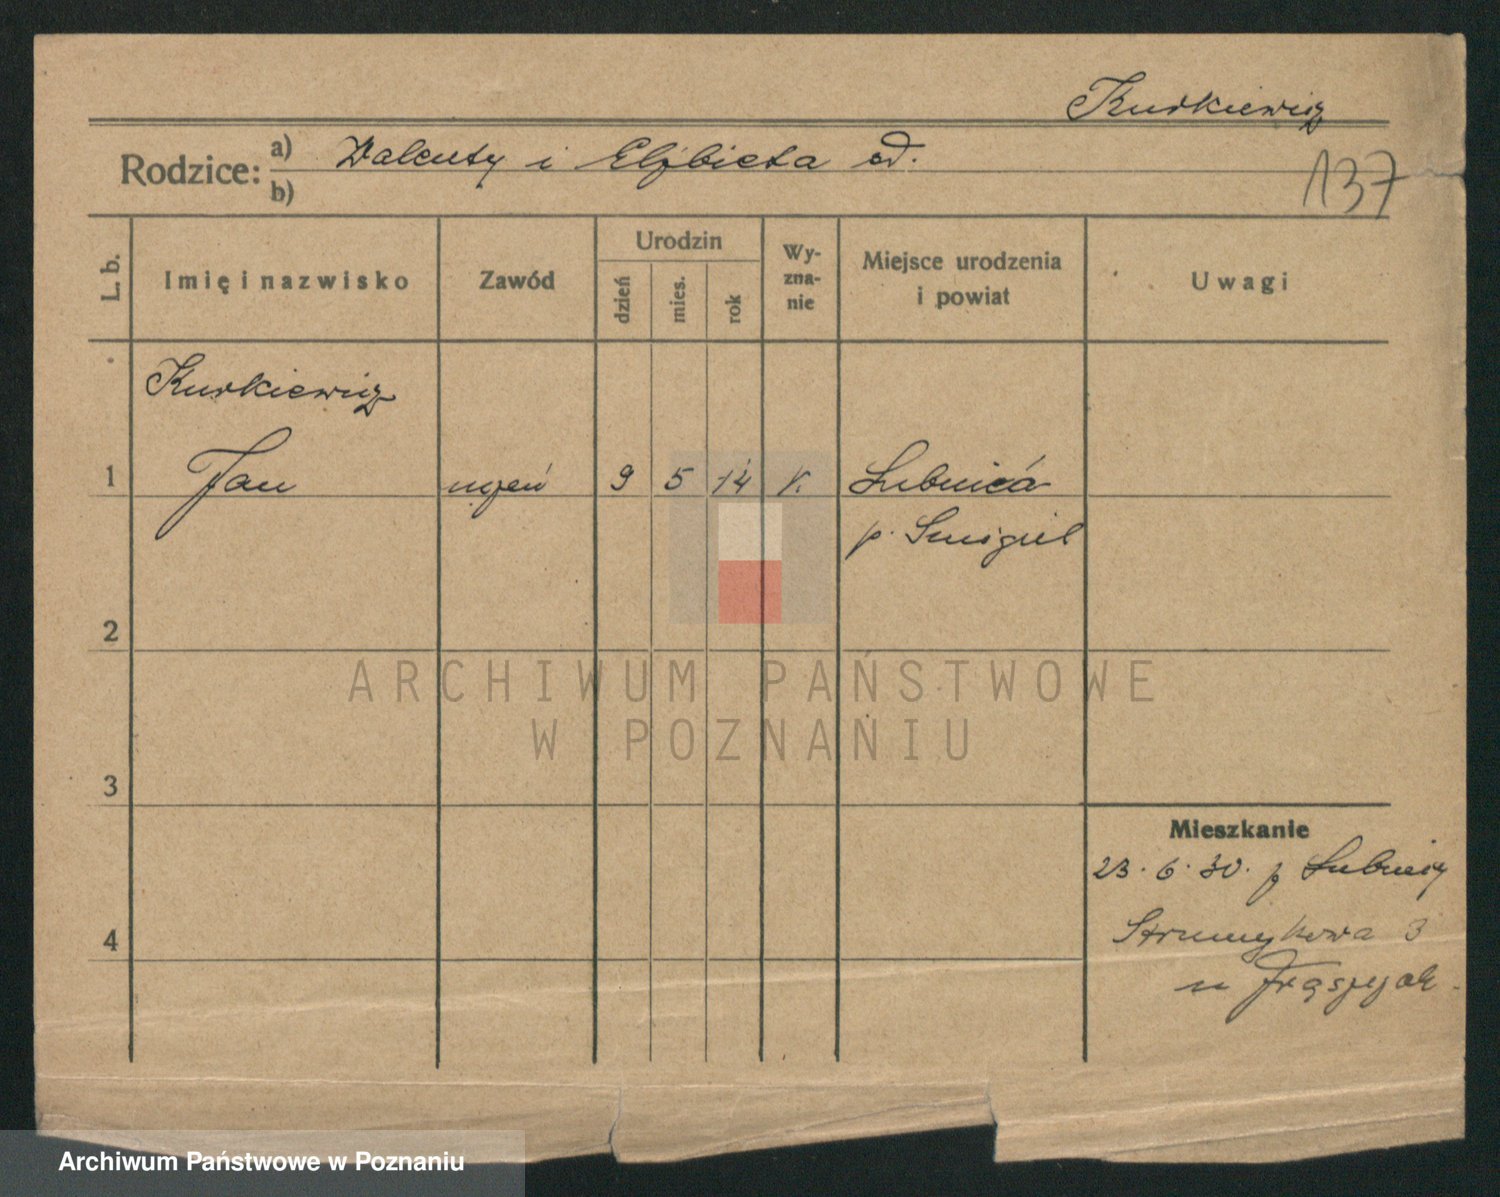 Kurkiewicz
Rodzice: a) Walenty i Elżbieta
b)
137
L. b.
Imię i nazwisko
Zawód
Urodzin
dzień
mies.
rok
Wy-
zna-
nie
Miejsce urodzenia
i powiat
Uwagi
Kurkiewicz
1 Jan uczeń 9 5 14 k. Lubnica
p. Smigiel
2
3
4
Mieszkanie
23. 6. 30. z Lubnicy
Strumykowa 3
u
ARCHIWUM PAŃSTWOWE
W POZNANIU
Archiwum Państwowe w Poznaniu